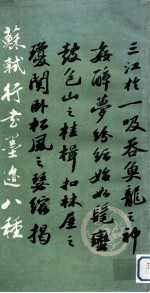 三江於一吸吞魚龍之神
姦醉夢紛紜始如髦蠻
鼓包山之桂楫扣林屋之
瓊關卧松風之瑟縮揭
蘇軾行書墨迹八種